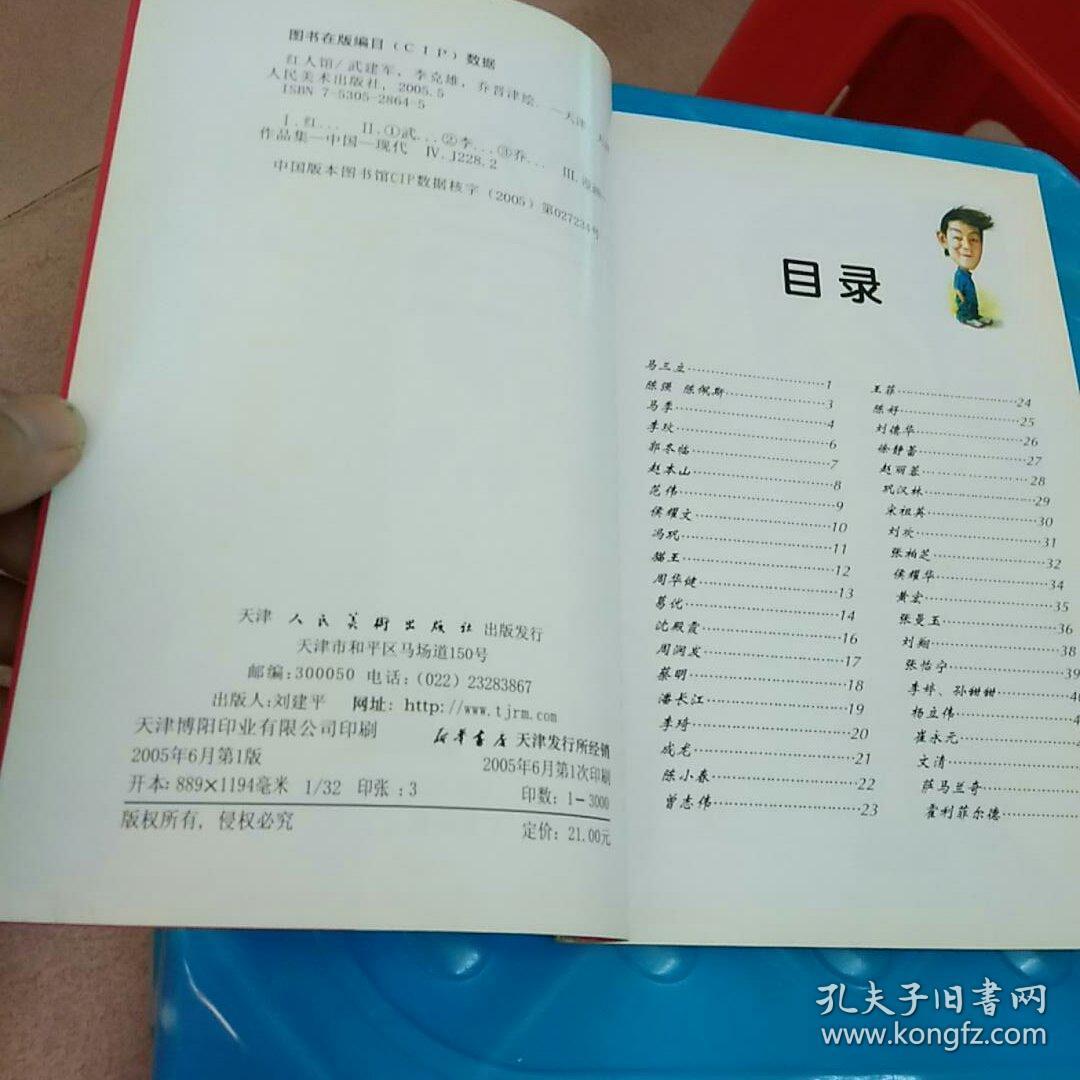 图书在版编目(CIP)数据
红人馆/武建军,李克雄,乔晋津绘.—天津
人民美术出版社,2005.5
ISBN 7-5305-2864-5
Ⅰ.红... Ⅱ.①武...②李...③乔... Ⅲ.
作品集—中国—现代 Ⅳ.J228.2
中国版本图书馆CIP数据核字(2005)第027234号
天津 人民美術出版社 出版发行
天津市和平区马场道150号
邮编:300050 电话:(022)23283867
出版人:刘建平 网址:http://www.tjrm.com
天津博阳印业有限公司印刷 新华书店 天津发行所经销
2005年6月第1版 2005年6月第1次印刷
开本:889×1194毫米 1/32 印张:3 印数:1-3000
版权所有,侵权必究 定价:21.00元
目录
马三立……1
陈强 陈佩斯……3
马季……4
李玟……6
郭冬临……7
赵本山……8
范伟……9
侯耀文……10
冯巩……11
猫王……12
周华健……13
葛优……14
沈殿霞……16
周润发……17
蔡明……18
潘长江……19
李琦……20
成龙……21
陈小春……22
曾志伟……23
王菲……24
陈好……25
刘德华……26
徐静蕾……27
赵丽蓉……28
巩汉林……29
宋祖英……30
刘欢……31
张柏芝……32
侯耀华……34
黄宏……35
张曼玉……36
刘翔……38
张怡宁……39
李婷、孙甜甜……
杨立伟……
崔永元……
文清……
萨马兰奇……
霍利菲尔德……
孔夫子旧書网
www.kongfz.com